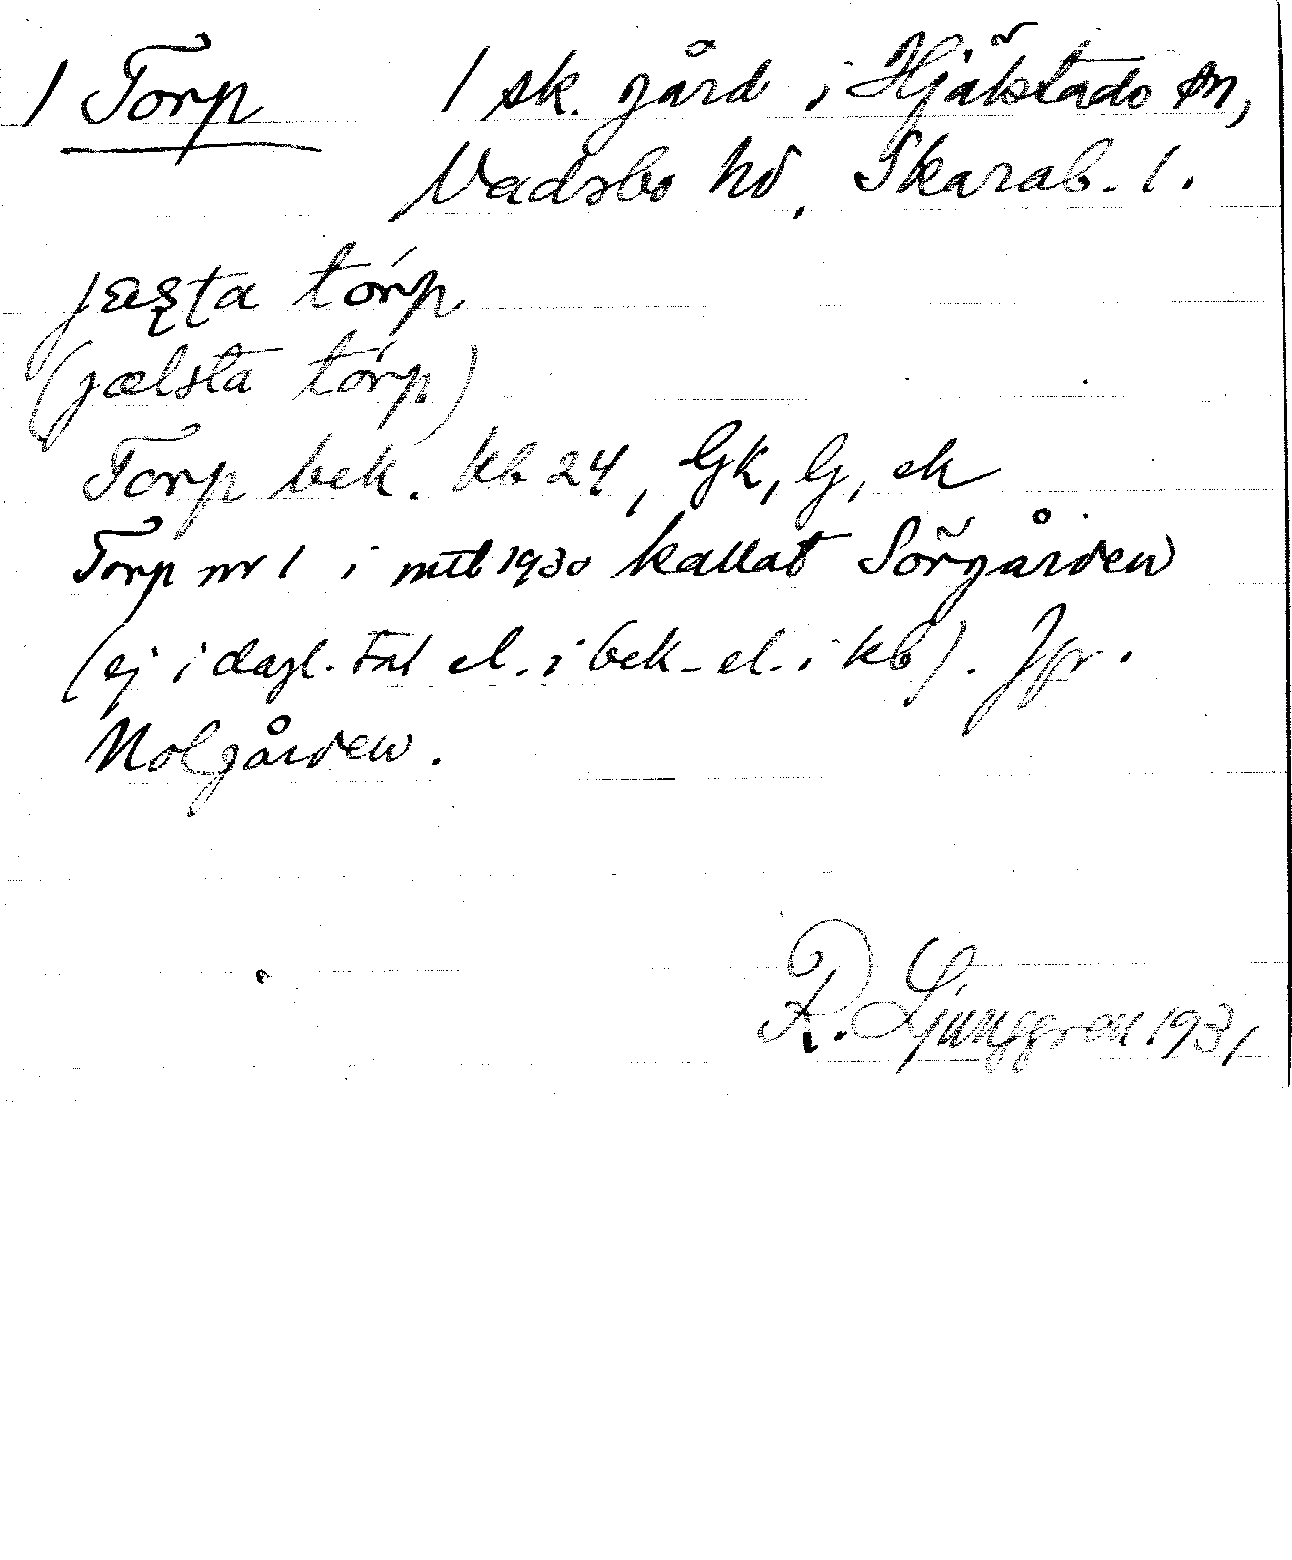 1 Torp 1 sk. gård i Hjälstads sn,
Vadsbo hd, Skarab. l.
jæʂʈa tórp
(jælsta tórp)
Torp bek. kb 24, Gk, G, ek
Torp nr 1 i mtl 1930 kallat Sörgården
(ej i dagl. tal el. i bek. el. i kb). Jfr.
Nolgården.
R. Ljunggren 1931